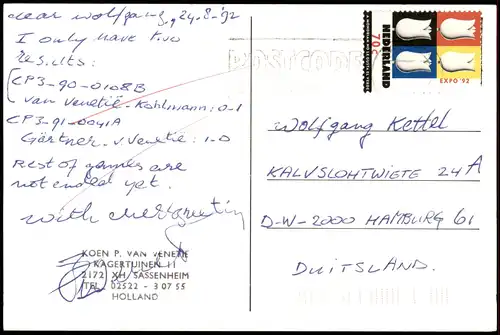 dear wolfgang, 24-8-'92
I only have two
results:
CP3-90-0108B
van Venetië-Kohlmann: 0-1
CP3-91-0041A
Gärtner-v.Venetië: 1-0
Rest of games are
not ended yet.
with
KOEN P. VAN VENETIE
KAGERTUINEN 11
2172 XH SASSENHEIM
TEL. 02522 - 3 07 55
HOLLAND
POSTCODE
NEDERLAND
70c
EXPO '92
Wolfgang Kettel
KALVSLOHTWIETE 24A
D-W-2000 HAMBURG 61
DUITSLAND.